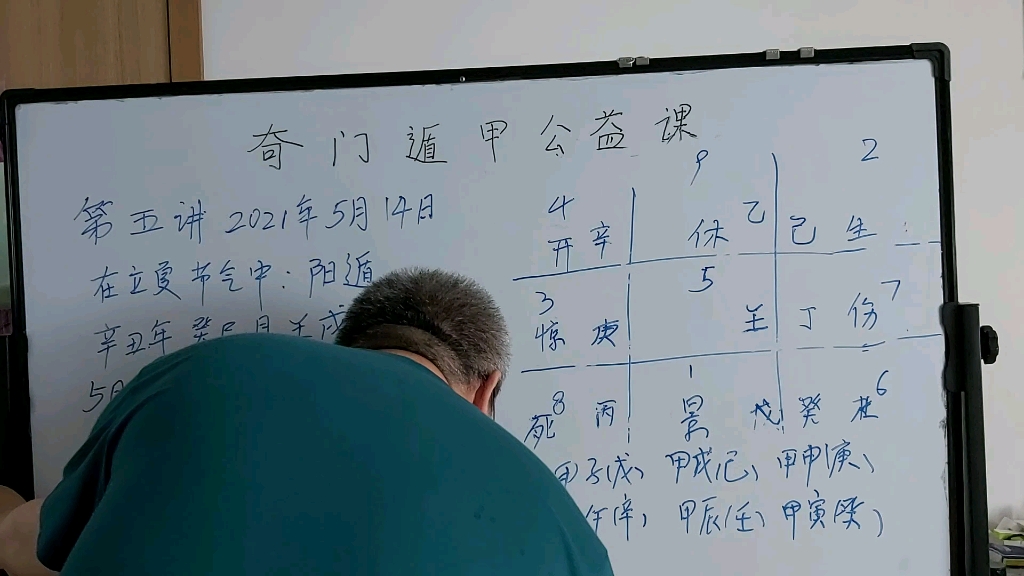 奇门遁甲公益课
第五讲 2021年5月14日
在立夏节气中：阳遁
辛丑年 癸巳月 壬戌
5月
4 9 2
开 辛 休 乙 己 生
3 5 7
惊 庚 壬 丁 伤
8 1 6
死 丙 景 戊 癸 杜
甲子(戊)、甲戌(己)、甲申(庚)、
午(辛)、甲辰(壬)、甲寅(癸)